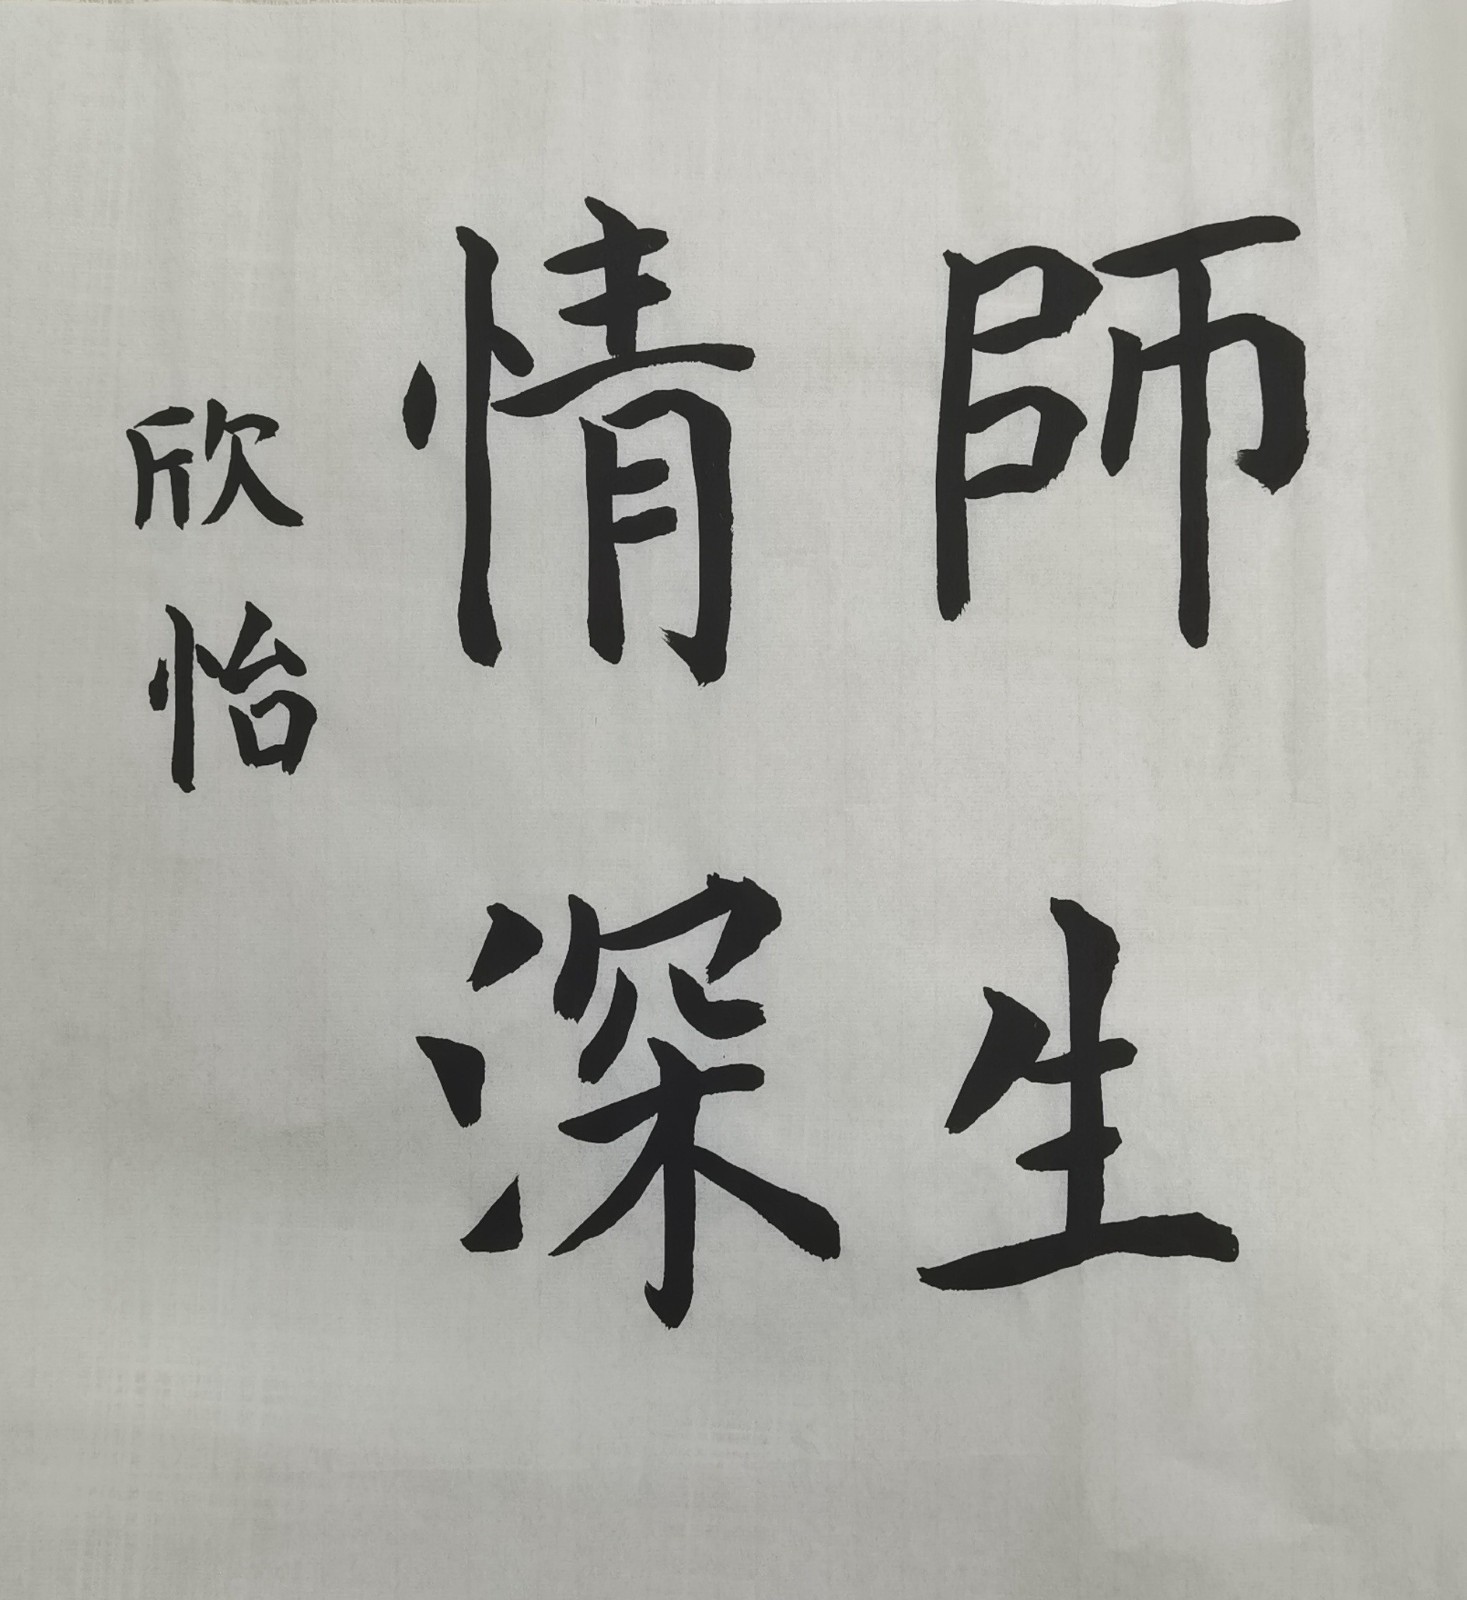 師生
情深
欣怡